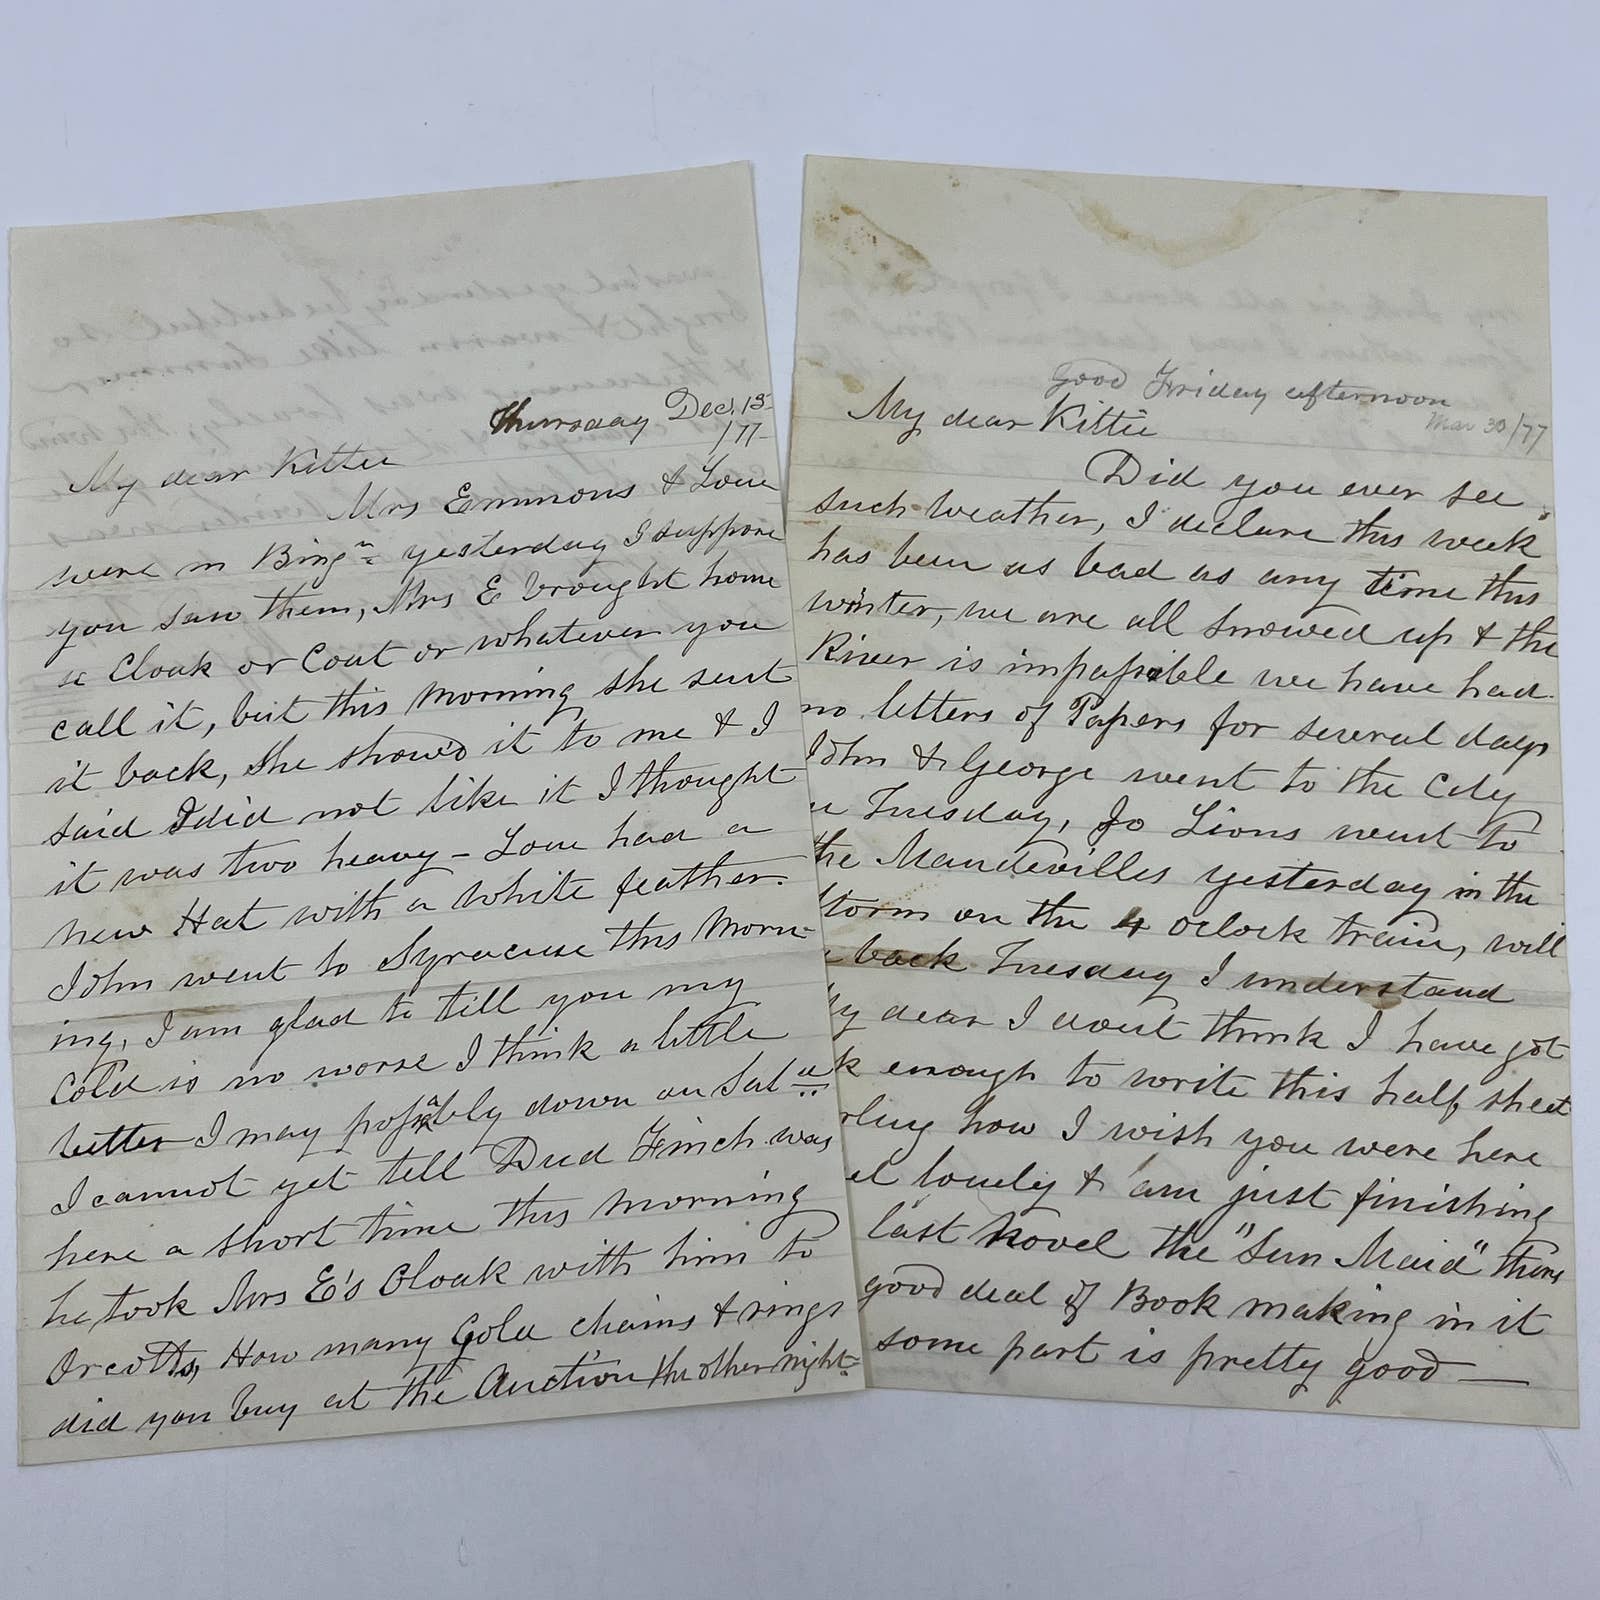 Thursday Dec. 13
/77
My dear Kittie
Mrs Emmons & Lou
were in Bingn yesterday I suppose
you saw them, Mrs E brought home
a Cloak or Coat or whatever you
call it, but this morning she sent
it back, She show'd it to me & I
said I did not like it I thought
it was two heavy - Lou had a
new Hat with a White feather.
John went to Syracuse this Morn-
ing, I am glad to tell you my
Cold is no worse I think a little
better I may possibly down on Sat
I cannot yet tell Dud Finch was
here a short time this morning
he took Mrs E's Cloak with him to
Orcotts, How many Gold chains & rings
did you buy at the Auction the other night
Good Friday afternoon
Mar 30/77
My dear Kittie
Did you ever see
such weather, I declare this week
has been as bad as any time this
winter, we are all snowed up & the
River is impassible we have had
no letters of Papers for several days
John & George went to the City
Tuesday, Jo Lions went to
the Mandevilles yesterday in the
storm on the 4 oclock train, will
back Tuesday I understand
My dear I dont think I have got
enough to write this half sheet
how I wish you were here
lonely & am just finishing
last Novel the "Sun Maid" there
good deal of Book making in it
some part is pretty good —